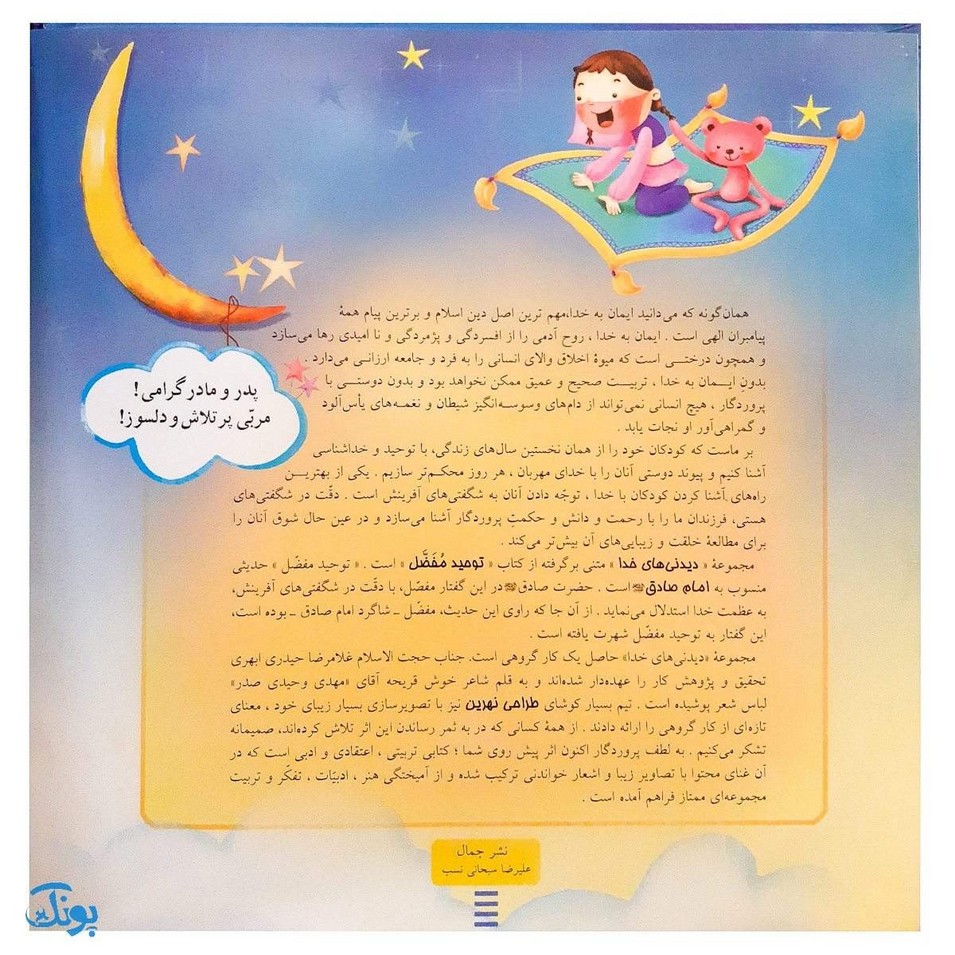 پدر و مادر گرامی!
مربّی پر تلاش و دلسوز!
همان‌گونه که می‌دانید ایمان به خدا،مهم ترین اصل دین اسلام و برترین پیام همهٔ
پیامبران الهی است . ایمان به خدا ، روح آدمی را از افسردگی و پژمردگی و نا امیدی رها می‌سازد
و همچون درختی است که میوهٔ اخلاق والای انسانی را به فرد و جامعه ارزانی می‌دارد .
بدون ایمان به خدا ، تربیت صحیح و عمیق ممکن نخواهد بود و بدون دوستی با
پروردگار ، هیچ انسانی نمی‌تواند از دام‌های وسوسه‌انگیز شیطان و نغمه‌های یأس‌آلود
و گمراهی‌آور او نجات یابد .
بر ماست که کودکان خود را از همان نخستین سال‌های زندگی، با توحید و خداشناسی
آشنا کنیم و پیوند دوستی آنان را با خدای مهربان ، هر روز محکم‌تر سازیم . یکی از بهترین
راه‌های آشنا کردن کودکان با خدا ، توجّه دادن آنان به شگفتی‌های آفرینش است . دقّت در شگفتی‌های
هستی، فرزندان ما را با رحمت و دانش و حکمتِ پروردگار آشنا می‌سازد و در عین حال شوق آنان را
برای مطالعهٔ خلقت و زیبایی‌های آن بیش‌تر می‌کند .
مجموعهٔ « دیدنی‌های خدا » متنی برگرفته از کتاب « توحید مُفَضَّل » است . « توحید مفضّل » حدیثی
منسوب به امام صادق است . حضرت صادق در این گفتار مفصّل، با دقّت در شگفتی‌های آفرینش،
به عظمت خدا استدلال می‌نماید . از آن جا که راوی این حدیث، مفضّل ـ شاگرد امام صادق ـ بوده است،
این گفتار به توحید مفضّل شهرت یافته است .
مجموعهٔ «دیدنی‌های خدا» حاصل یک کار گروهی است. جناب حجت الاسلام غلامرضا حیدری ابهری
تحقیق و پژوهش کار را عهده‌دار شده‌اند و به قلم شاعر خوش قریحه آقای «مهدی وحیدی صدر»
لباس شعر پوشیده است . تیم بسیار کوشای طراحی نهرین نیز با تصویرسازی بسیار زیبای خود ، معنای
تازه‌ای از کار گروهی را ارائه دادند . از همهٔ کسانی که در به ثمر رساندن این اثر تلاش کرده‌اند، صمیمانه
تشکر می‌کنیم . به لطف پروردگار اکنون اثر پیش روی شما ؛ کتابی تربیتی ، اعتقادی و ادبی است که در
آن غنای محتوا با تصاویر زیبا و اشعار خواندنی ترکیب شده و از آمیختگی هنر ، ادبیّات ، تفکّر و تربیت
مجموعه‌ای ممتاز فراهم آمده است .
نشر جمال
علیرضا سبحانی نسب
پونک